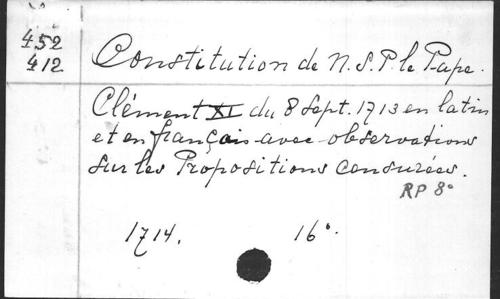 452
412
Constitution de N.S.P. le Pape.
Clément XI du 8 Sept. 1713 en latin
et en français avec observations
sur les Propositions censurées.
RP 8º
1714. 16º.